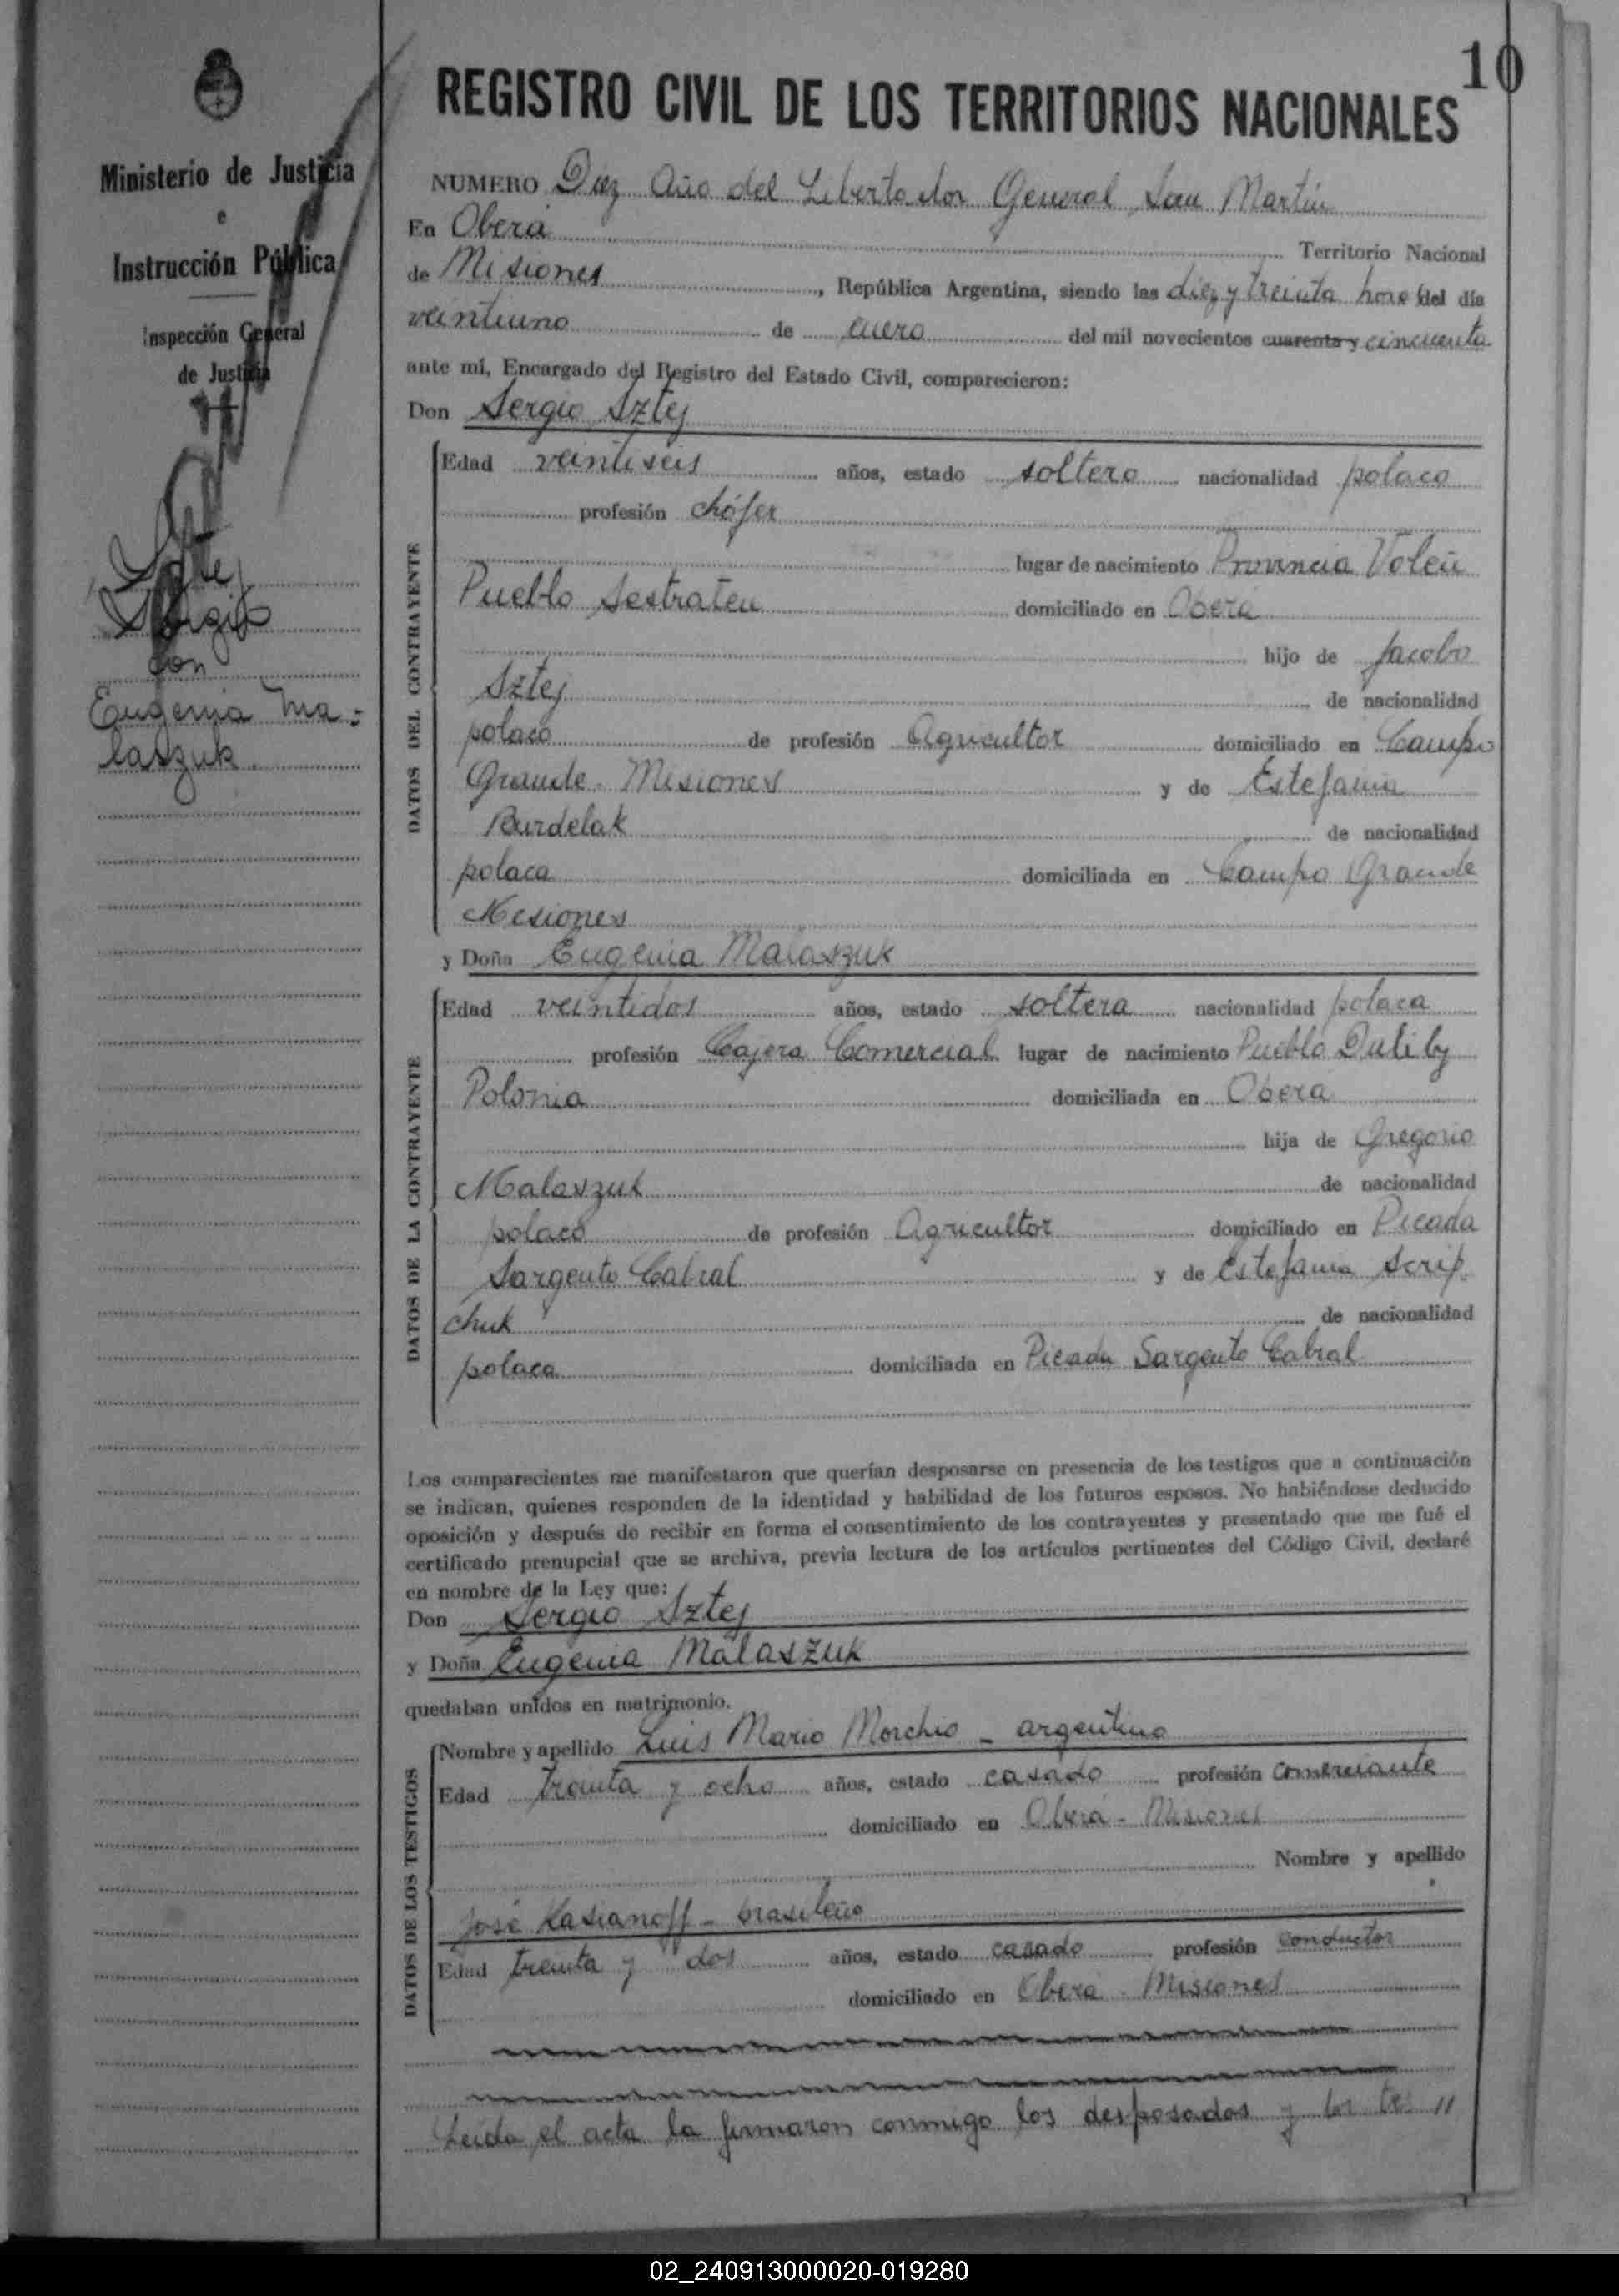 10
REGISTRO CIVIL DE LOS TERRITORIOS NACIONALES
Ministerio de Justicia
e
Instrucción Pública
Inspección General
de Justicia
Szte
Sergio
con
Eugenia Ma-
laszuk.
NUMERO Diez Año del Libertador General San Martín
En Oberá Territorio Nacional
de Misiones, República Argentina, siendo las diez y treinta horas del día
veintiuno de enero del mil novecientos cuarenta y cincuenta
ante mí, Encargado del Registro del Estado Civil, comparecieron:
Don Sergio Sztej
DATOS DEL CONTRAYENTE
Edad veintiseis años, estado soltero nacionalidad polaco
profesión chófer
lugar de nacimiento Provincia Voleñ
Pueblo Sestrateñ domiciliado en Oberá
hijo de Jacobo
Sztej de nacionalidad
polaco de profesión Agricultor domiciliado en Campo
Grande. Misiones y de Estefania
Burdelak de nacionalidad
polaca domiciliada en Campo Grande
Misiones
y Doña Eugenia Malaszuk
DATOS DE LA CONTRAYENTE
Edad veintidos años, estado soltera nacionalidad polaca
profesión Cajera Comercial lugar de nacimiento Pueblo Duliby
Polonia domiciliada en Oberá
hija de Gregorio
Malaszuk de nacionalidad
polaco de profesión Agricultor domiciliado en Picada
Sargento Cabral y de Estefania Scrip-
chuk de nacionalidad
polaca domiciliada en Picada Sargento Cabral
Los comparecientes me manifestaron que querían desposarse en presencia de los testigos que a continuación
se indican, quienes responden de la identidad y habilidad de los futuros esposos. No habiéndose deducido
oposición y después de recibir en forma el consentimiento de los contrayentes y presentado que me fué el
certificado prenupcial que se archiva, previa lectura de los artículos pertinentes del Código Civil, declaré
en nombre de la Ley que:
Don Sergio Sztej
y Doña Eugenia Malaszuk
quedaban unidos en matrimonio.
DATOS DE LOS TESTIGOS
Nombre y apellido Luis Mario Morchio - argentino
Edad treinta y ocho años, estado casado profesión comerciante
domiciliado en Oberá - Misiones
Nombre y apellido
José Kasianoff - brasileño
Edad treinta y dos años, estado casado profesión conductor
domiciliado en Oberá - Misiones
Leída el acta la firmaron conmigo los desposados y los tes //
02_240913000020-019280